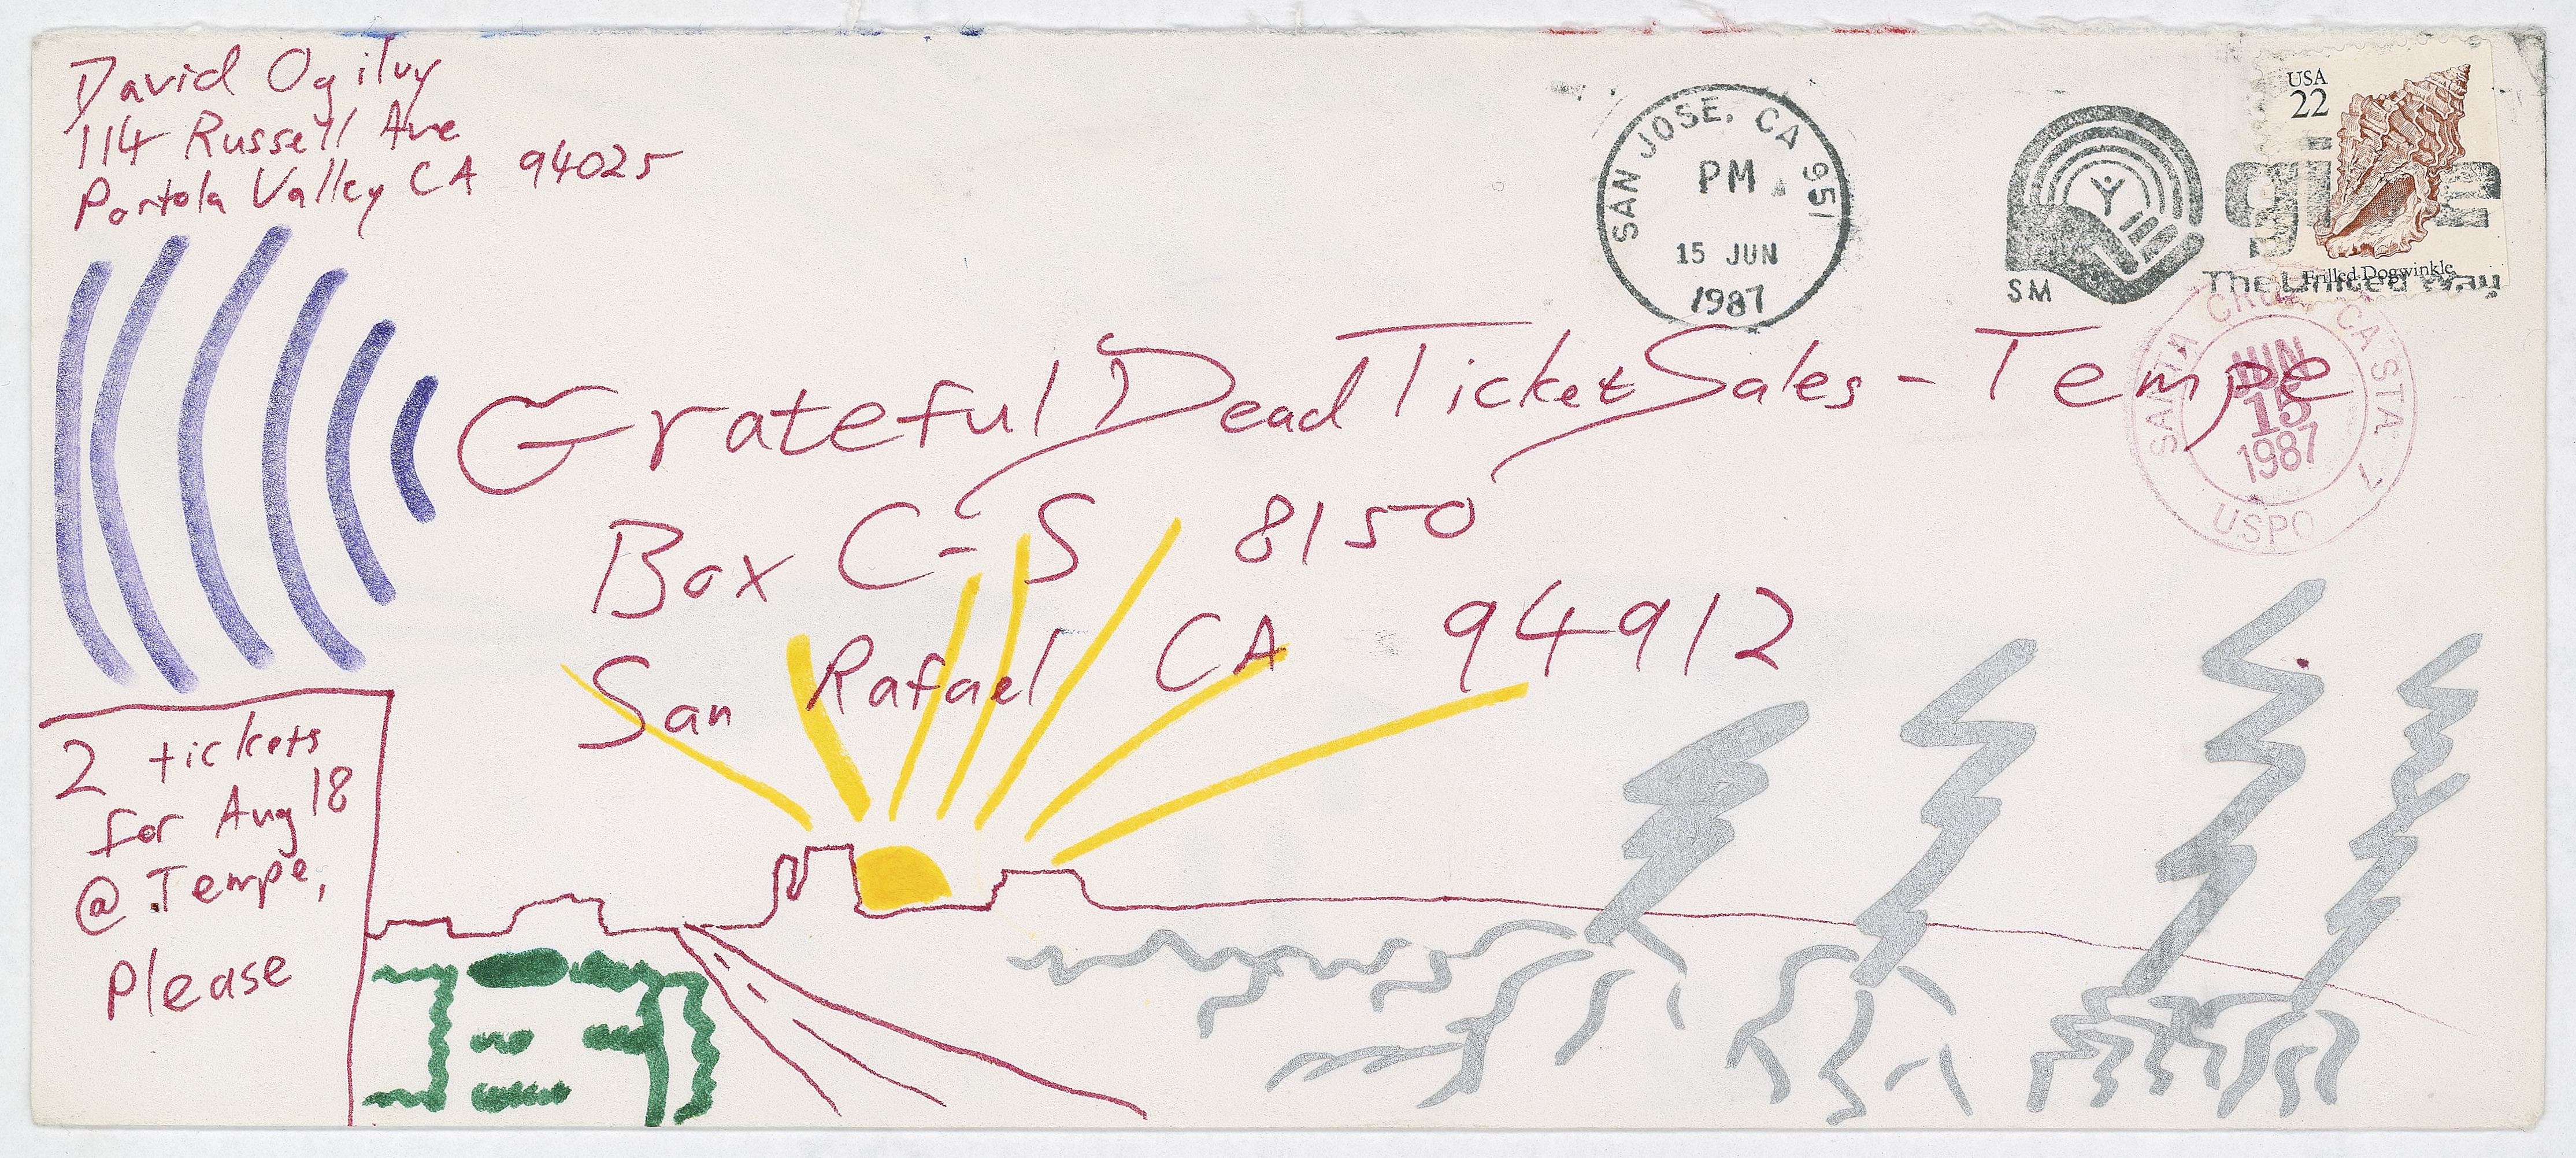 David Ogilvy
114 Russell Ave
Portola Valley CA 94025
SAN JOSE, CA 951
PM
15 JUN
1987
SM
give
The United Way
USA
22
Frilled Dogwinkle
SANTA CRUZ, CA STA
JUN
15
1987
USPO
Grateful Dead Ticket Sales - Tempe
Box C-S 8150
San Rafael CA 94912
2 tickets
for Aug 18
@ Tempe,
Please